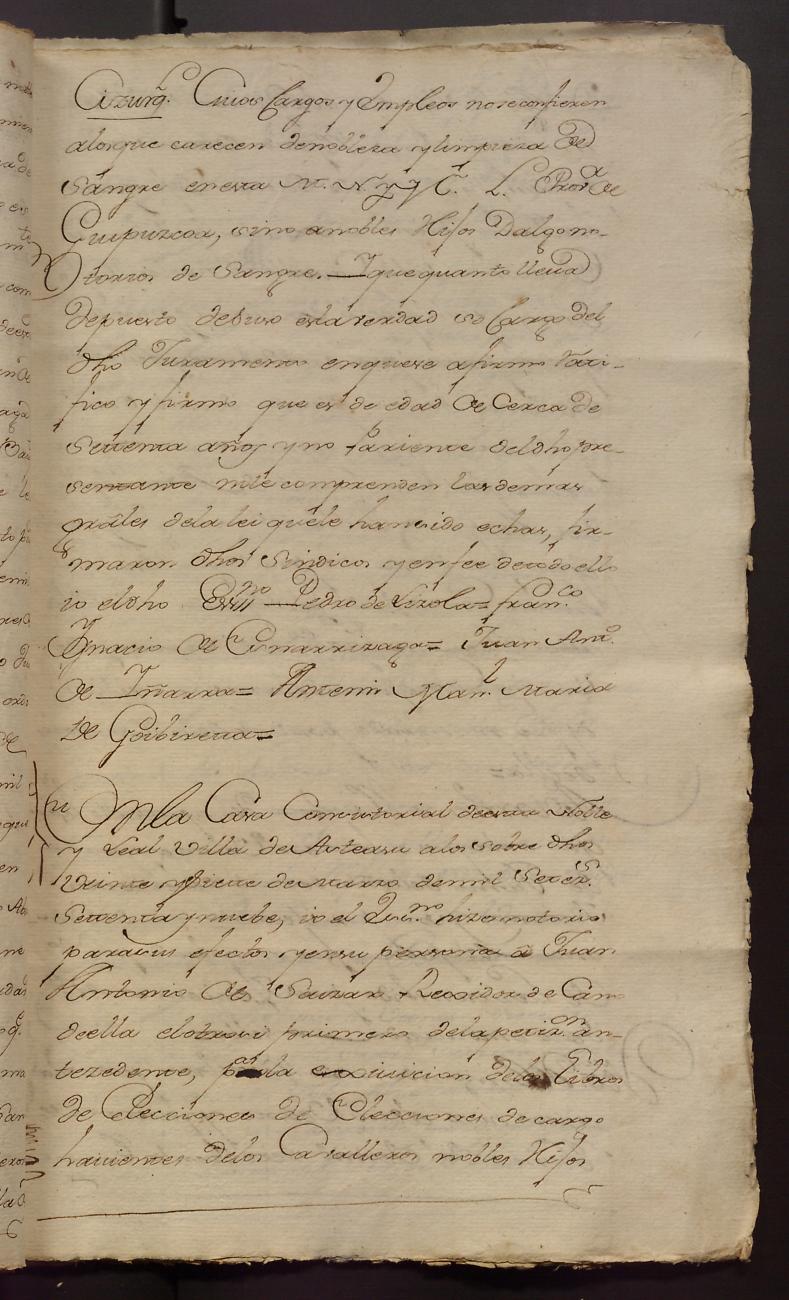 Cizurql. Cuios Cargos y Empleos no se confieren
alosque carecen denobleza y limpieza de
Sangre enesta M. N. y L. Prov.a de
Guipuzcoa, sino anobles Hijos Dalgo no-
torios de Sangre. Y que quanto lleva
depuesto debuso esla verdad so Cargo del
dho Juramento enquese afirmo Rati-
fico y firmo que es de edad de Cerca de
Settenta años y no Pariente deldho pre-
sentante nile comprenden lasdemas
grales dela lei quele han sido echas, fir-
maron dhos Sindicos y enfee detodo ello
io eldho Essno Pedro de Lizola= Fran.co
Ygnacio de = Juan Ant.o
de Yñarra= Antemi Man.l Maria
de Goibireta=
Enla Casa Concextorial deesta Noble
y Leal Villa de Asteasu alos sobre dhos
Veinte y siete de Marzo demil Setez.s
Settenta y nuebe, io el Es.no hize notorio
parasus efectos y ensu persona a Juan
Antonio de Saizar Rexidor de Can
deella elotrosi primero dela petiz.on an-
tezedente, para la exsivicion delos Libros
de Elecciones de Elecciones de cargo
havientes delos Cavalleros nobles Hijos